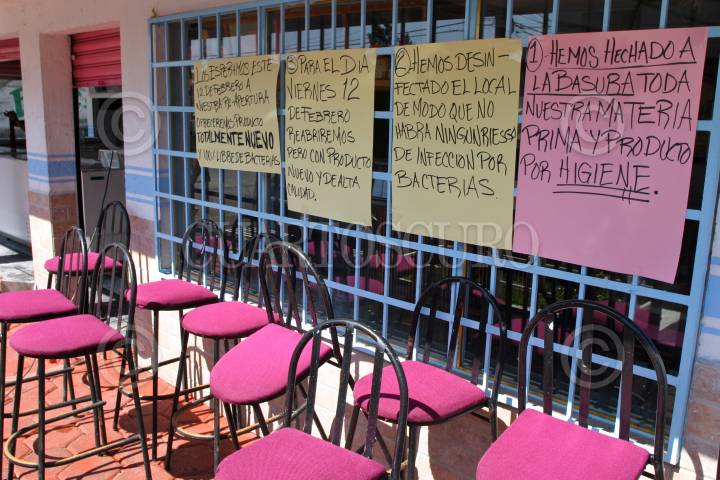 LOS ESPERAMOS ESTE
12 DE FEBRERO A
NUESTRA RE-APERTURA
OFRECEREMOS PRODUCTO
TOTALMENTE NUEVO
Y 100% LIBRE DE BACTERIAS
③ PARA EL DIA
VIERNES 12
DE FEBRERO
REABRIREMOS
PERO CON PRODUCTO
NUEVO Y DE ALTA
CALIDAD.
② HEMOS DESIN-
FECTADO EL LOCAL
DE MODO QUE NO
HABRA NINGUN RIESGO
DE INFECCION POR
BACTERIAS.
1) HEMOS HECHADO A
LA BASURA TODA
NUESTRA MATERIA
PRIMA Y PRODUCTO
POR HIGIENE.
CUARTOSCURO